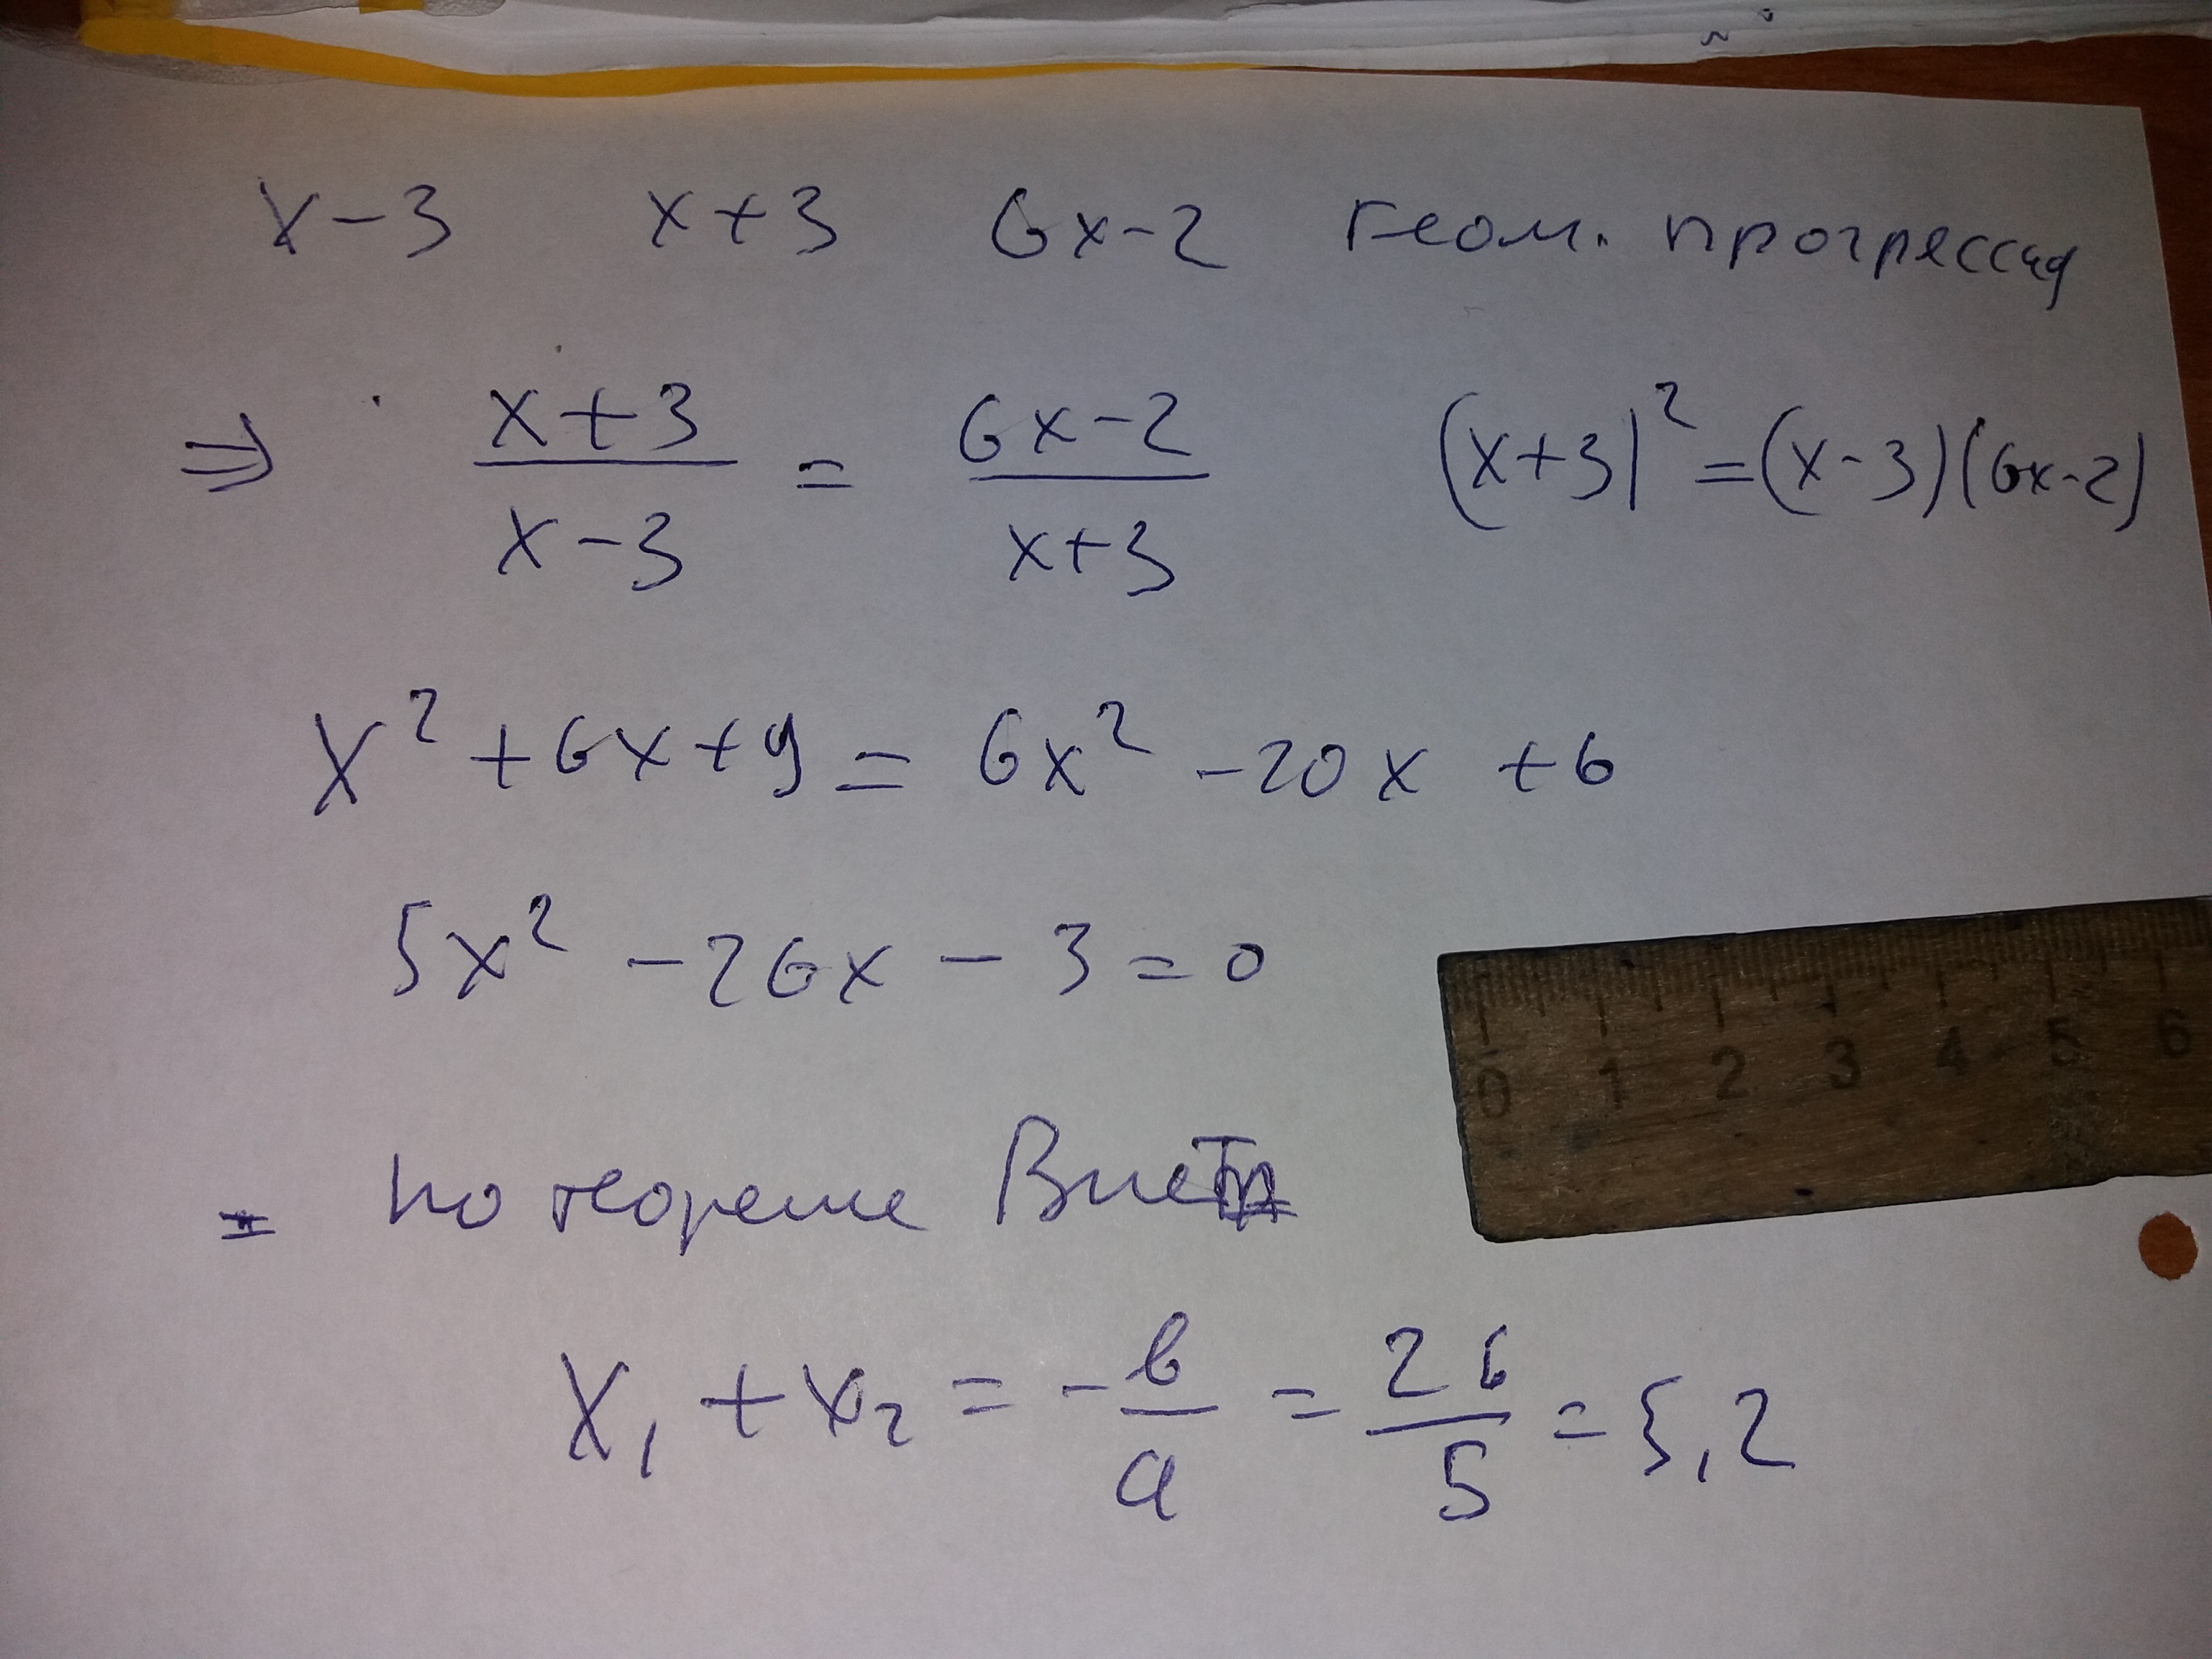 x-3 x+3 6x-2 геом. прогрессия
⇒ (x+3)/(x-3) = (6x-2)/(x+3) (x+3)² = (x-3)(6x-2)
x² + 6x + 9 = 6x² - 20x + 6
5x² - 26x - 3 = 0
= по теореме Виета
x₁ + x₂ = -b/a = 26/5 = 5,2
0 1 2 3 4 5 6